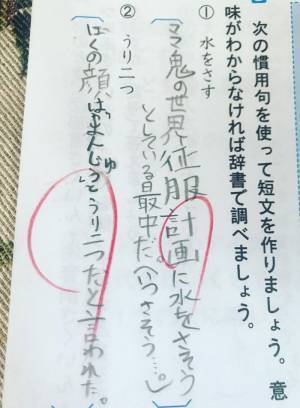 次の慣用句を使って短文を作りましょう。意
味がわからなければ辞書で調べましょう。
① 水をさす
ママ鬼の世界征服計画に水をさそう
としている最中だ。(いつさそう…。)
② うり二つ
ぼくの顔はまんじゅうとうり二つだと言われた。